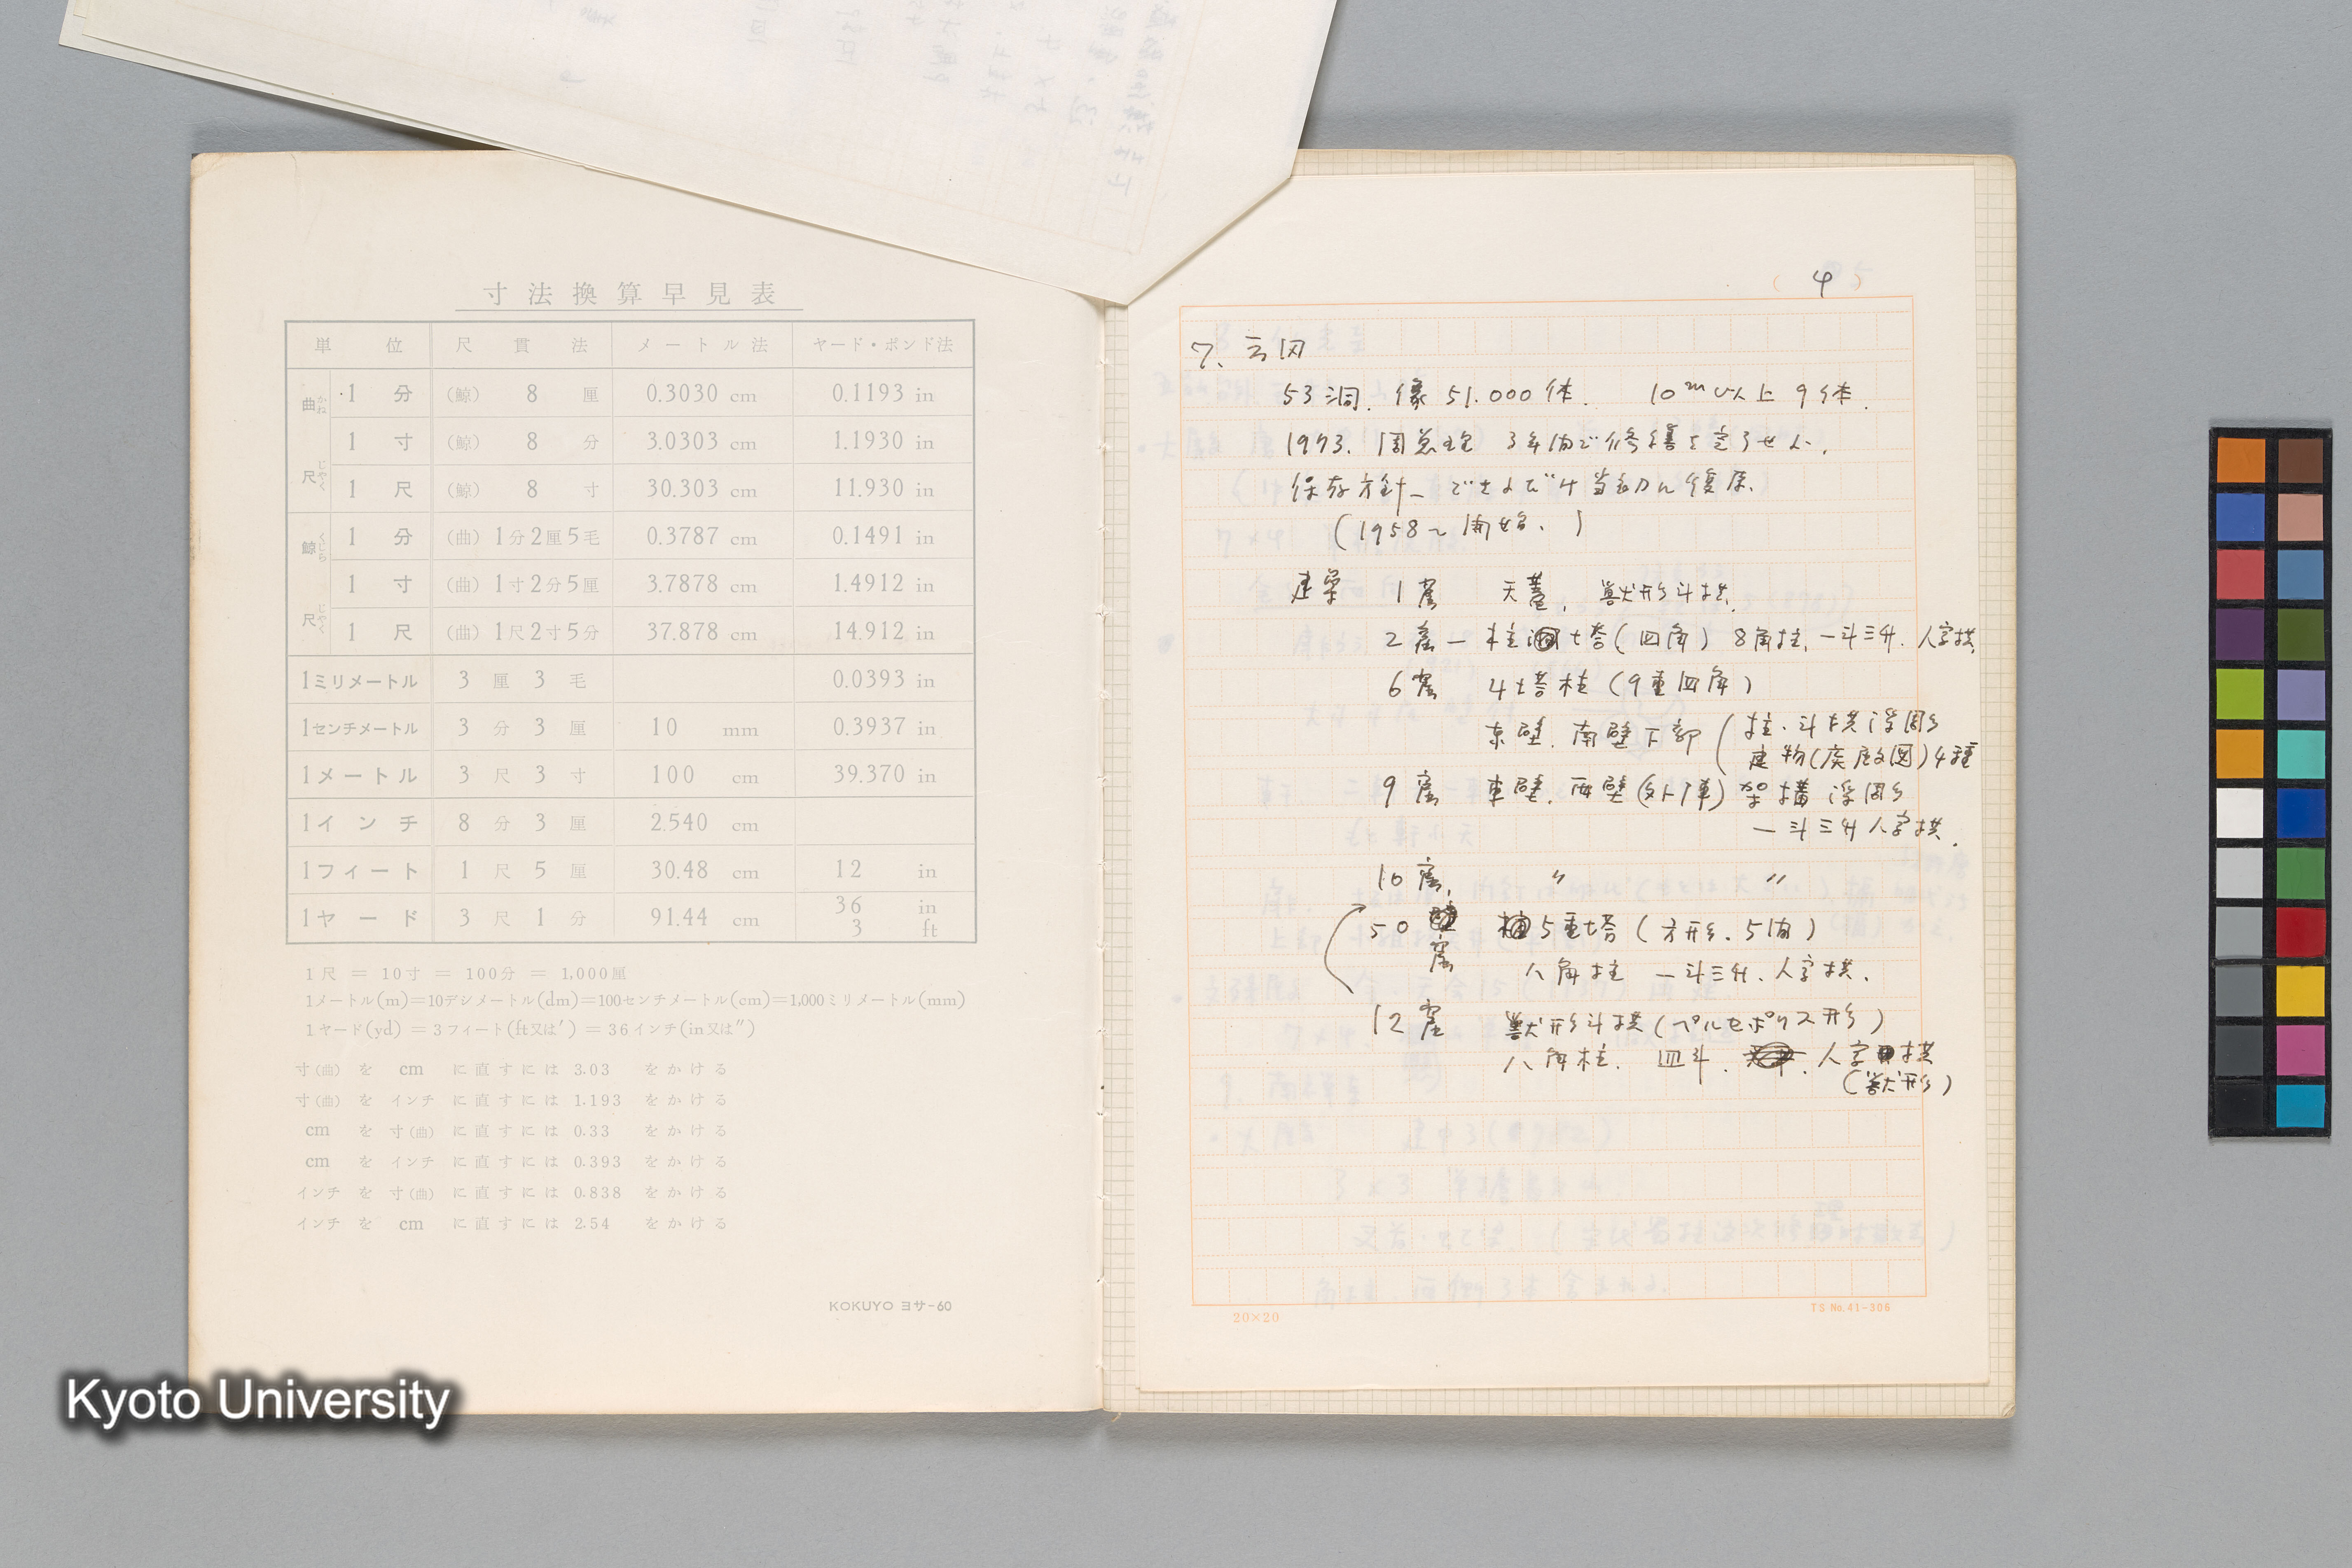 寸法換算早見表
単位 尺貫法 メートル法 ヤード・ポンド法
曲尺 かねじゃく
1分 (鯨) 8厘 0.3030 cm 0.1193 in
1寸 (鯨) 8分 3.0303 cm 1.1930 in
1尺 (鯨) 8寸 30.303 cm 11.930 in
鯨尺 くじらじゃく
1分 (曲) 1分2厘5毛 0.3787 cm 0.1491 in
1寸 (曲) 1寸2分5厘 3.7878 cm 1.4912 in
1尺 (曲) 1尺2寸5分 37.878 cm 14.912 in
1ミリメートル 3厘3毛 0.0393 in
1センチメートル 3分3厘 10 mm 0.3937 in
1メートル 3尺3寸 100 cm 39.370 in
1インチ 8分3厘 2.540 cm
1フィート 1尺5厘 30.48 cm 12 in
1ヤード 3尺1分 91.44 cm 36 in 3 ft
1尺 = 10寸 = 100分 = 1,000厘
1メートル(m)=10デシメートル(dm)=100センチメートル(cm)=1,000ミリメートル(mm)
1ヤード(yd) = 3フィート(ft又は′) = 36インチ(in又は″)
寸(曲) を cm に直すには 3.03 をかける
寸(曲) を インチ に直すには 1.193 をかける
cm を 寸(曲) に直すには 0.33 をかける
cm を インチ に直すには 0.393 をかける
インチ を 寸(曲) に直すには 0.838 をかける
インチ を cm に直すには 2.54 をかける
KOKUYO ヨサ-60
( 4 )
7. 云冈
53洞. 像 51.000体. 10m以上 9体.
1973. 周总理 3年内で修繕を完了せよ.
保存方針— できるだけ当初に復原.
(1958~開始.)
建築 1窟 天蓋, 獣形斗拱.
2窟— 柱 塔(四角) 8角柱, 一斗三升. 人字拱.
6窟 4塔柱(9重四角)
東壁. 南壁下部 (柱・斗拱浮周り
建物(廃殿図)4種
9窟 東壁. 西壁(外陣) 架構浮周り
一斗三升人字拱.
10窟. 〃 〃
50窟 5重塔(方形. 5間)
八角柱 一斗三升. 人字拱.
12窟 獣形斗拱(ペルセポリス形)
八角柱. 皿斗. 人字拱
(獣形)
20×20
TS No.41-306
Kyoto University